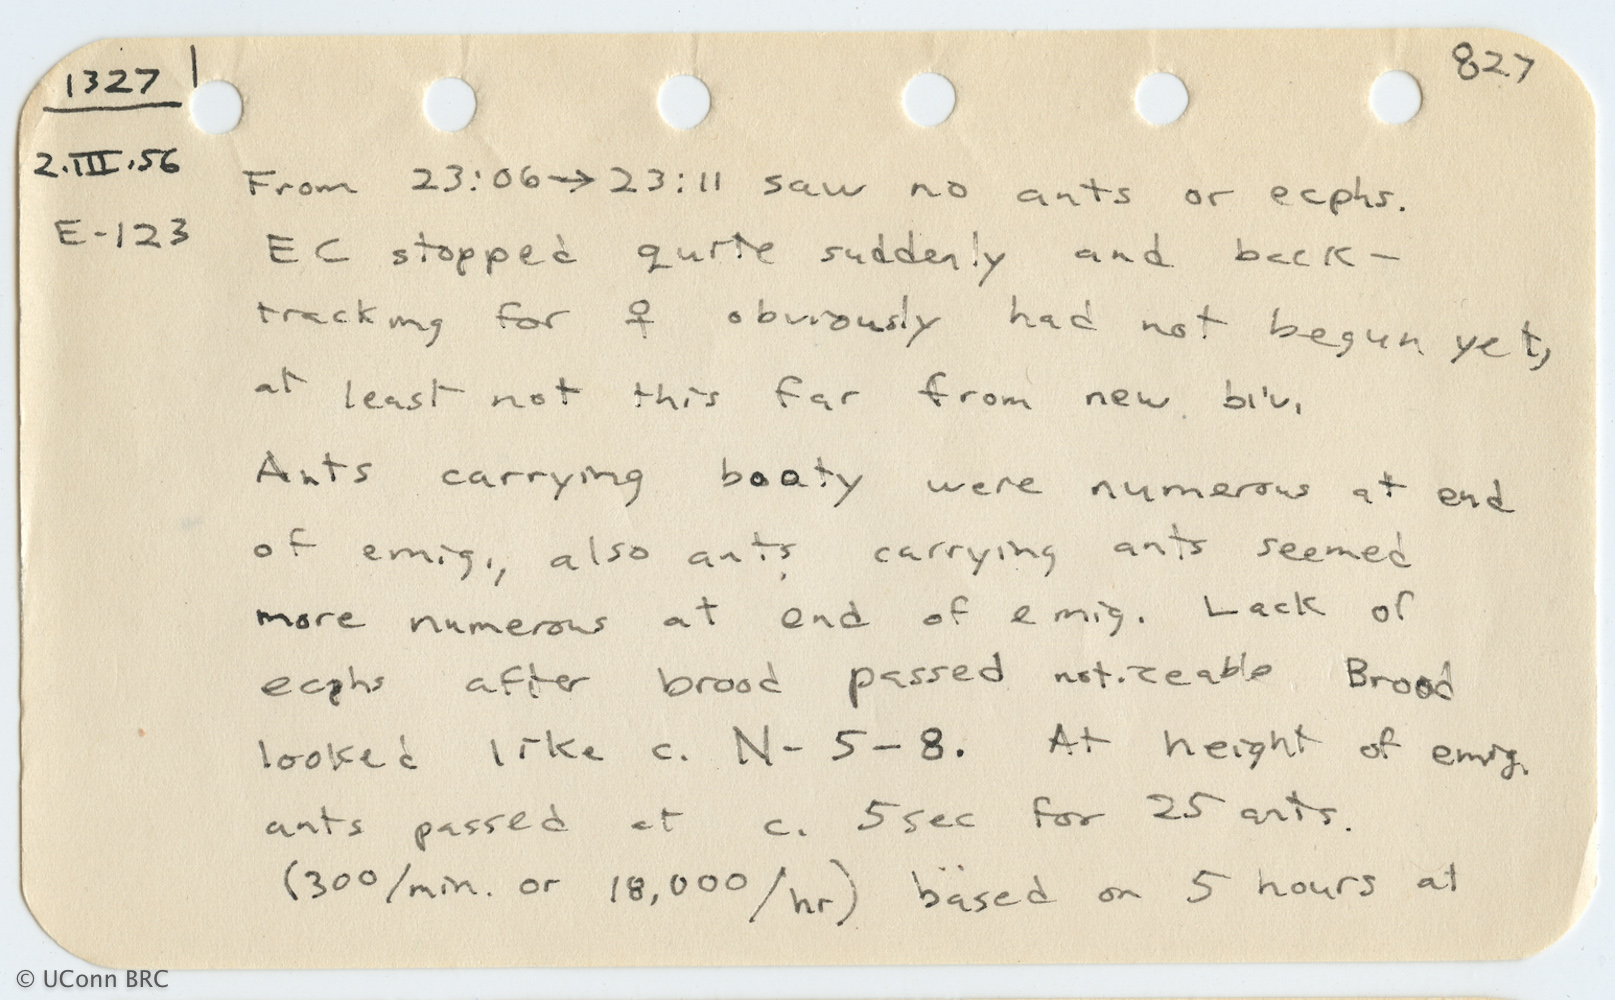 1327
827
2.III.56
E-123
From 23:06→23:11 saw no ants or ecphs.
EC stopped quite suddenly and back-
tracking for ♀ obviously had not begun yet,
at least not this far from new biv.
Ants carrying booty were numerous at end
of emig., also ants carrying ants seemed
more numerous at end of emig. Lack of
ecphs after brood passed noticeable Brood
looked like c. N-5-8. At height of emig.
ants passed at c. 5 sec for 25 ants.
(300/min. or 18,000/hr) based on 5 hours at
© UConn BRC